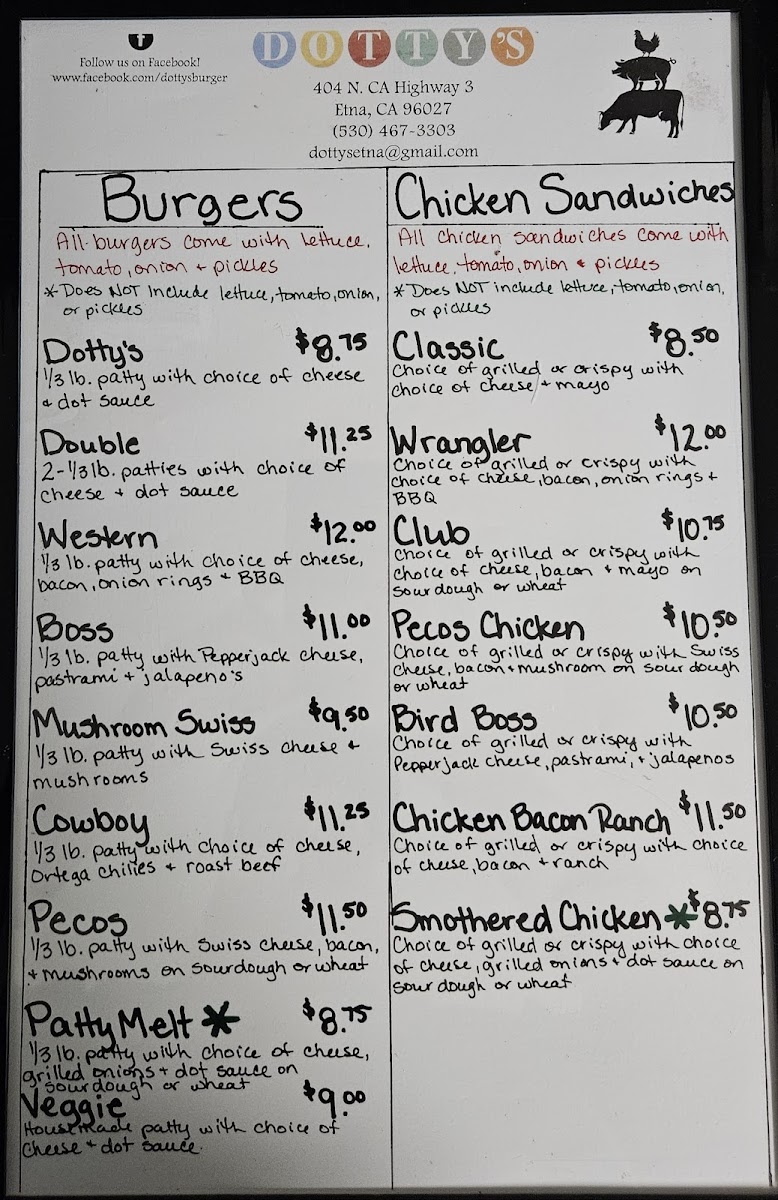 Follow us on Facebook!
www.facebook.com/dottysburger
DOTTY'S
404 N. CA Highway 3
Etna, CA 96027
(530) 467-3303
dottysetna@gmail.com
Burgers
All burgers come with lettuce,
tomato, onion + pickles
*Does NOT include lettuce, tomato, onion,
or pickles
Dotty's $8.75
1/3 lb. patty with choice of cheese
+ dot sauce
Double $11.25
2-1/3 lb. patties with choice of
cheese + dot sauce
Western $12.00
1/3 lb. patty with choice of cheese,
bacon, onion rings + BBQ
Boss $11.00
1/3 lb. patty with Pepperjack cheese,
pastrami + jalapeno's
Mushroom Swiss $9.50
1/3 lb. patty with Swiss cheese +
mushrooms
Cowboy $11.25
1/3 lb. patty with choice of cheese,
Ortega chilies + roast beef
Pecos $11.50
1/3 lb. patty with Swiss cheese, bacon,
+ mushrooms on sourdough or wheat
Patty Melt * $8.75
1/3 lb. patty with choice of cheese,
grilled onions + dot sauce on
sourdough or wheat
Veggie $9.00
Housemade patty with choice of
cheese + dot sauce.
Chicken Sandwiches
All chicken sandwiches come with
lettuce, tomato, onion + pickles
*Does NOT include lettuce, tomato, onion,
or pickles
Classic $8.50
Choice of grilled or crispy with
choice of cheese + mayo
Wrangler $12.00
Choice of grilled or crispy with
choice of cheese, bacon, onion rings +
BBQ
Club $10.75
Choice of grilled or crispy with
choice of cheese, bacon + mayo on
sour dough or wheat
Pecos Chicken $10.50
Choice of grilled or crispy with Swiss
cheese, bacon + mushroom on sour dough
or wheat
Bird Boss $10.50
Choice of grilled or crispy with
Pepperjack cheese, pastrami, + jalapenos
Chicken Bacon Ranch $11.50
Choice of grilled or crispy with choice
of cheese, bacon + ranch
Smothered Chicken * $8.75
Choice of grilled or crispy with choice
of cheese, grilled onions + dot sauce on
sour dough or wheat